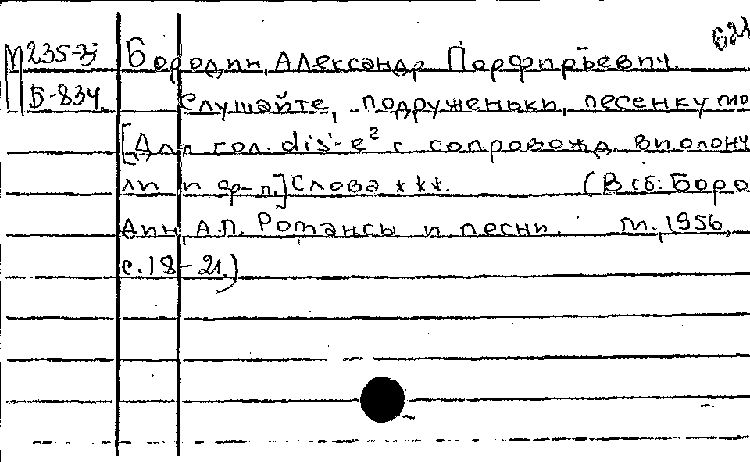 621
М 235-3 Бородин, Александр Порфирьевич.
Б-834 Слушайте, подруженьки, песенку мо
[Для гол. dis¹-e² с сопровожд. виолонч
ли и ф-п.] Слова ***. (В сб: Боро
дин, А.П. Романсы и песни. М., 1956,
с. 18-21.)